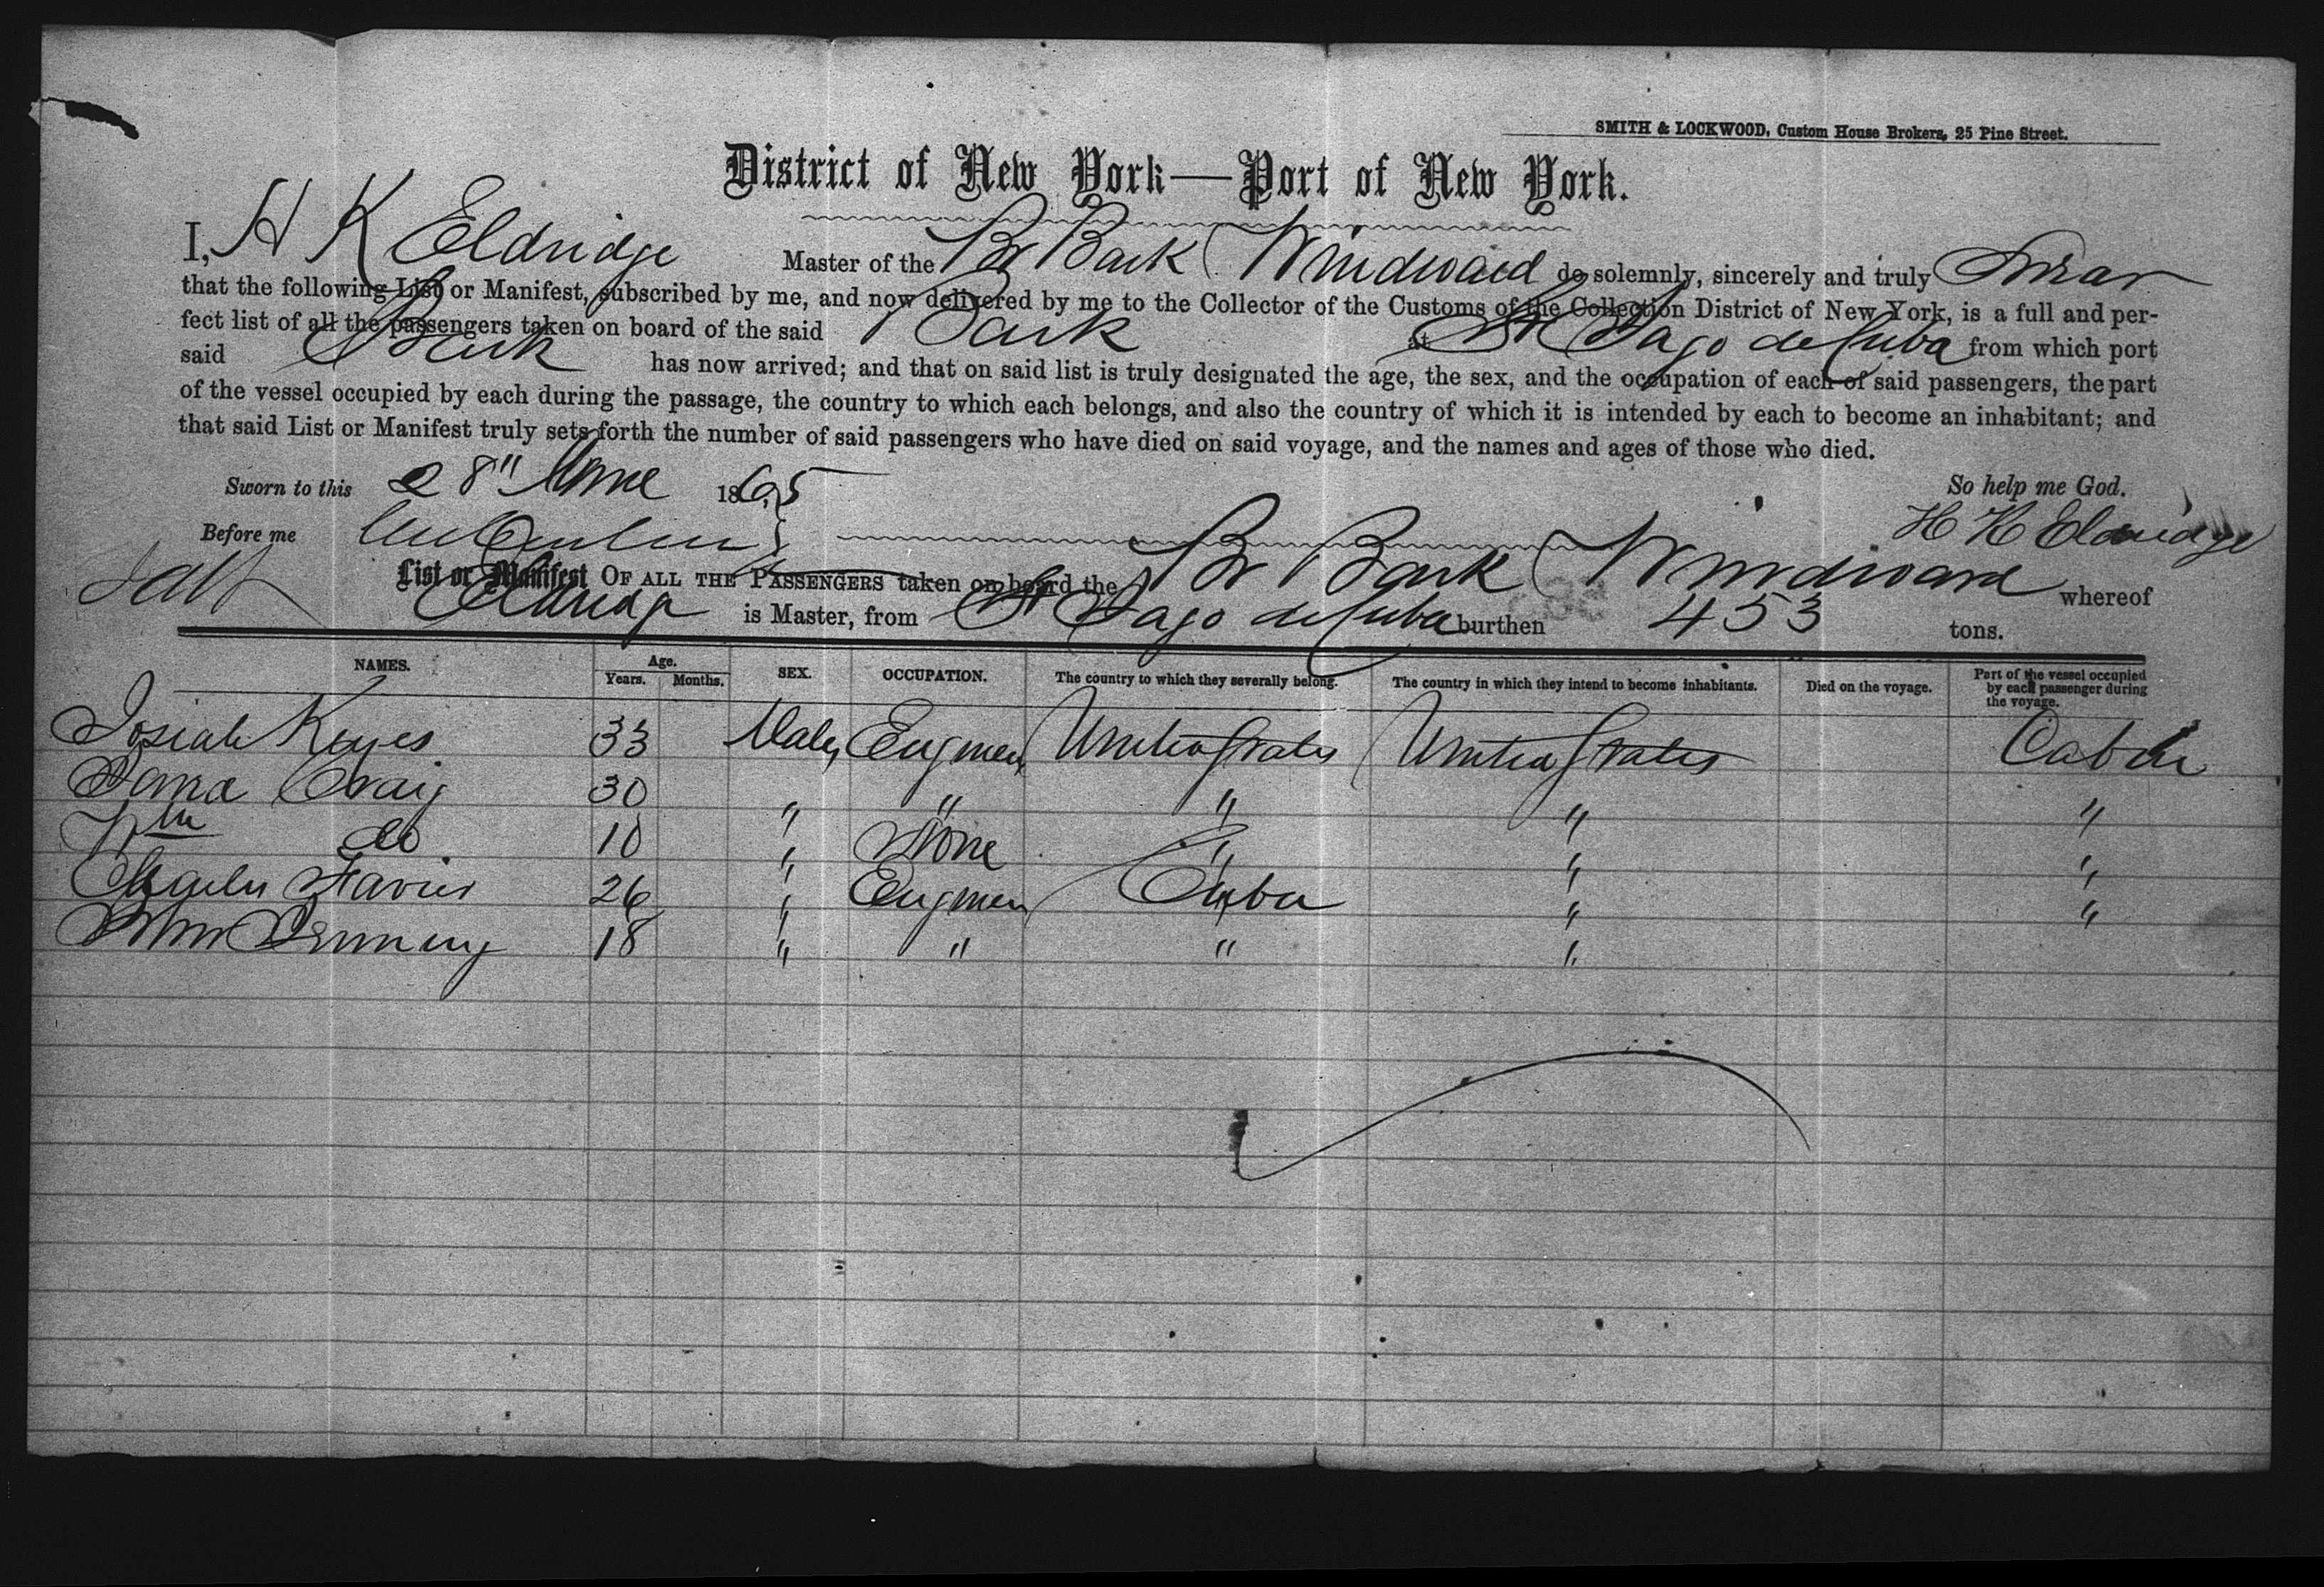 SMITH & LOCKWOOD, Custom House Brokers, 25 Pine Street.
District of New York—Port of New York.
I, H K Eldridge Master of the Br Bark Windward do solemnly, sincerely and truly Swear
that the following List or Manifest, subscribed by me, and now delivered by me to the Collector of the Customs of the Collection District of New York, is a full and per-
fect list of all the passengers taken on board of the said Bark at St Jago de Cuba from which port
said Bark has now arrived; and that on said list is truly designated the age, the sex, and the occupation of each of said passengers, the part
of the vessel occupied by each during the passage, the country to which each belongs, and also the country of which it is intended by each to become an inhabitant; and
that said List or Manifest truly sets forth the number of said passengers who have died on said voyage, and the names and ages of those who died.
Sworn to this 28" June 1865 So help me God.
Before me H K Eldridge
List or Manifest OF ALL THE PASSENGERS taken on board the Br Bark Windward whereof
Eldridge is Master, from St Jago de Cuba burthen 453 tons.
NAMES. Age. Years. Months. SEX. OCCUPATION. The country to which they severally belong. The country in which they intend to become inhabitants. Died on the voyage. Part of the vessel occupied by each passenger during the voyage.
Josiah Keyes 33 Male Engineer United States United States Cabin
Craig 30 " " " " "
Wm do 10 " None " " "
Charles Favier 26 " Engineer Cuba " "
18 " " " "